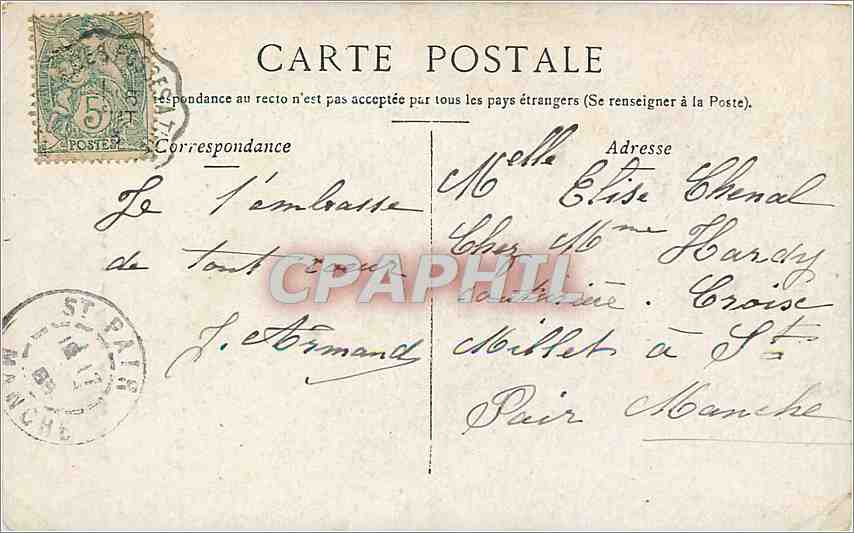 CARTE POSTALE
respondance au recto n'est pas acceptée par tous les pays étrangers (Se renseigner à la Poste).
5c
POSTES
Correspondance
Je t'embrasse
de tout cœur
J. Armand
Adresse
Melle
Elise Chenal
Chez Mme Hardy
couturière. Croix
Millet à St
Pair Manche
CPAPHIL
ST PAIR
MANCHE